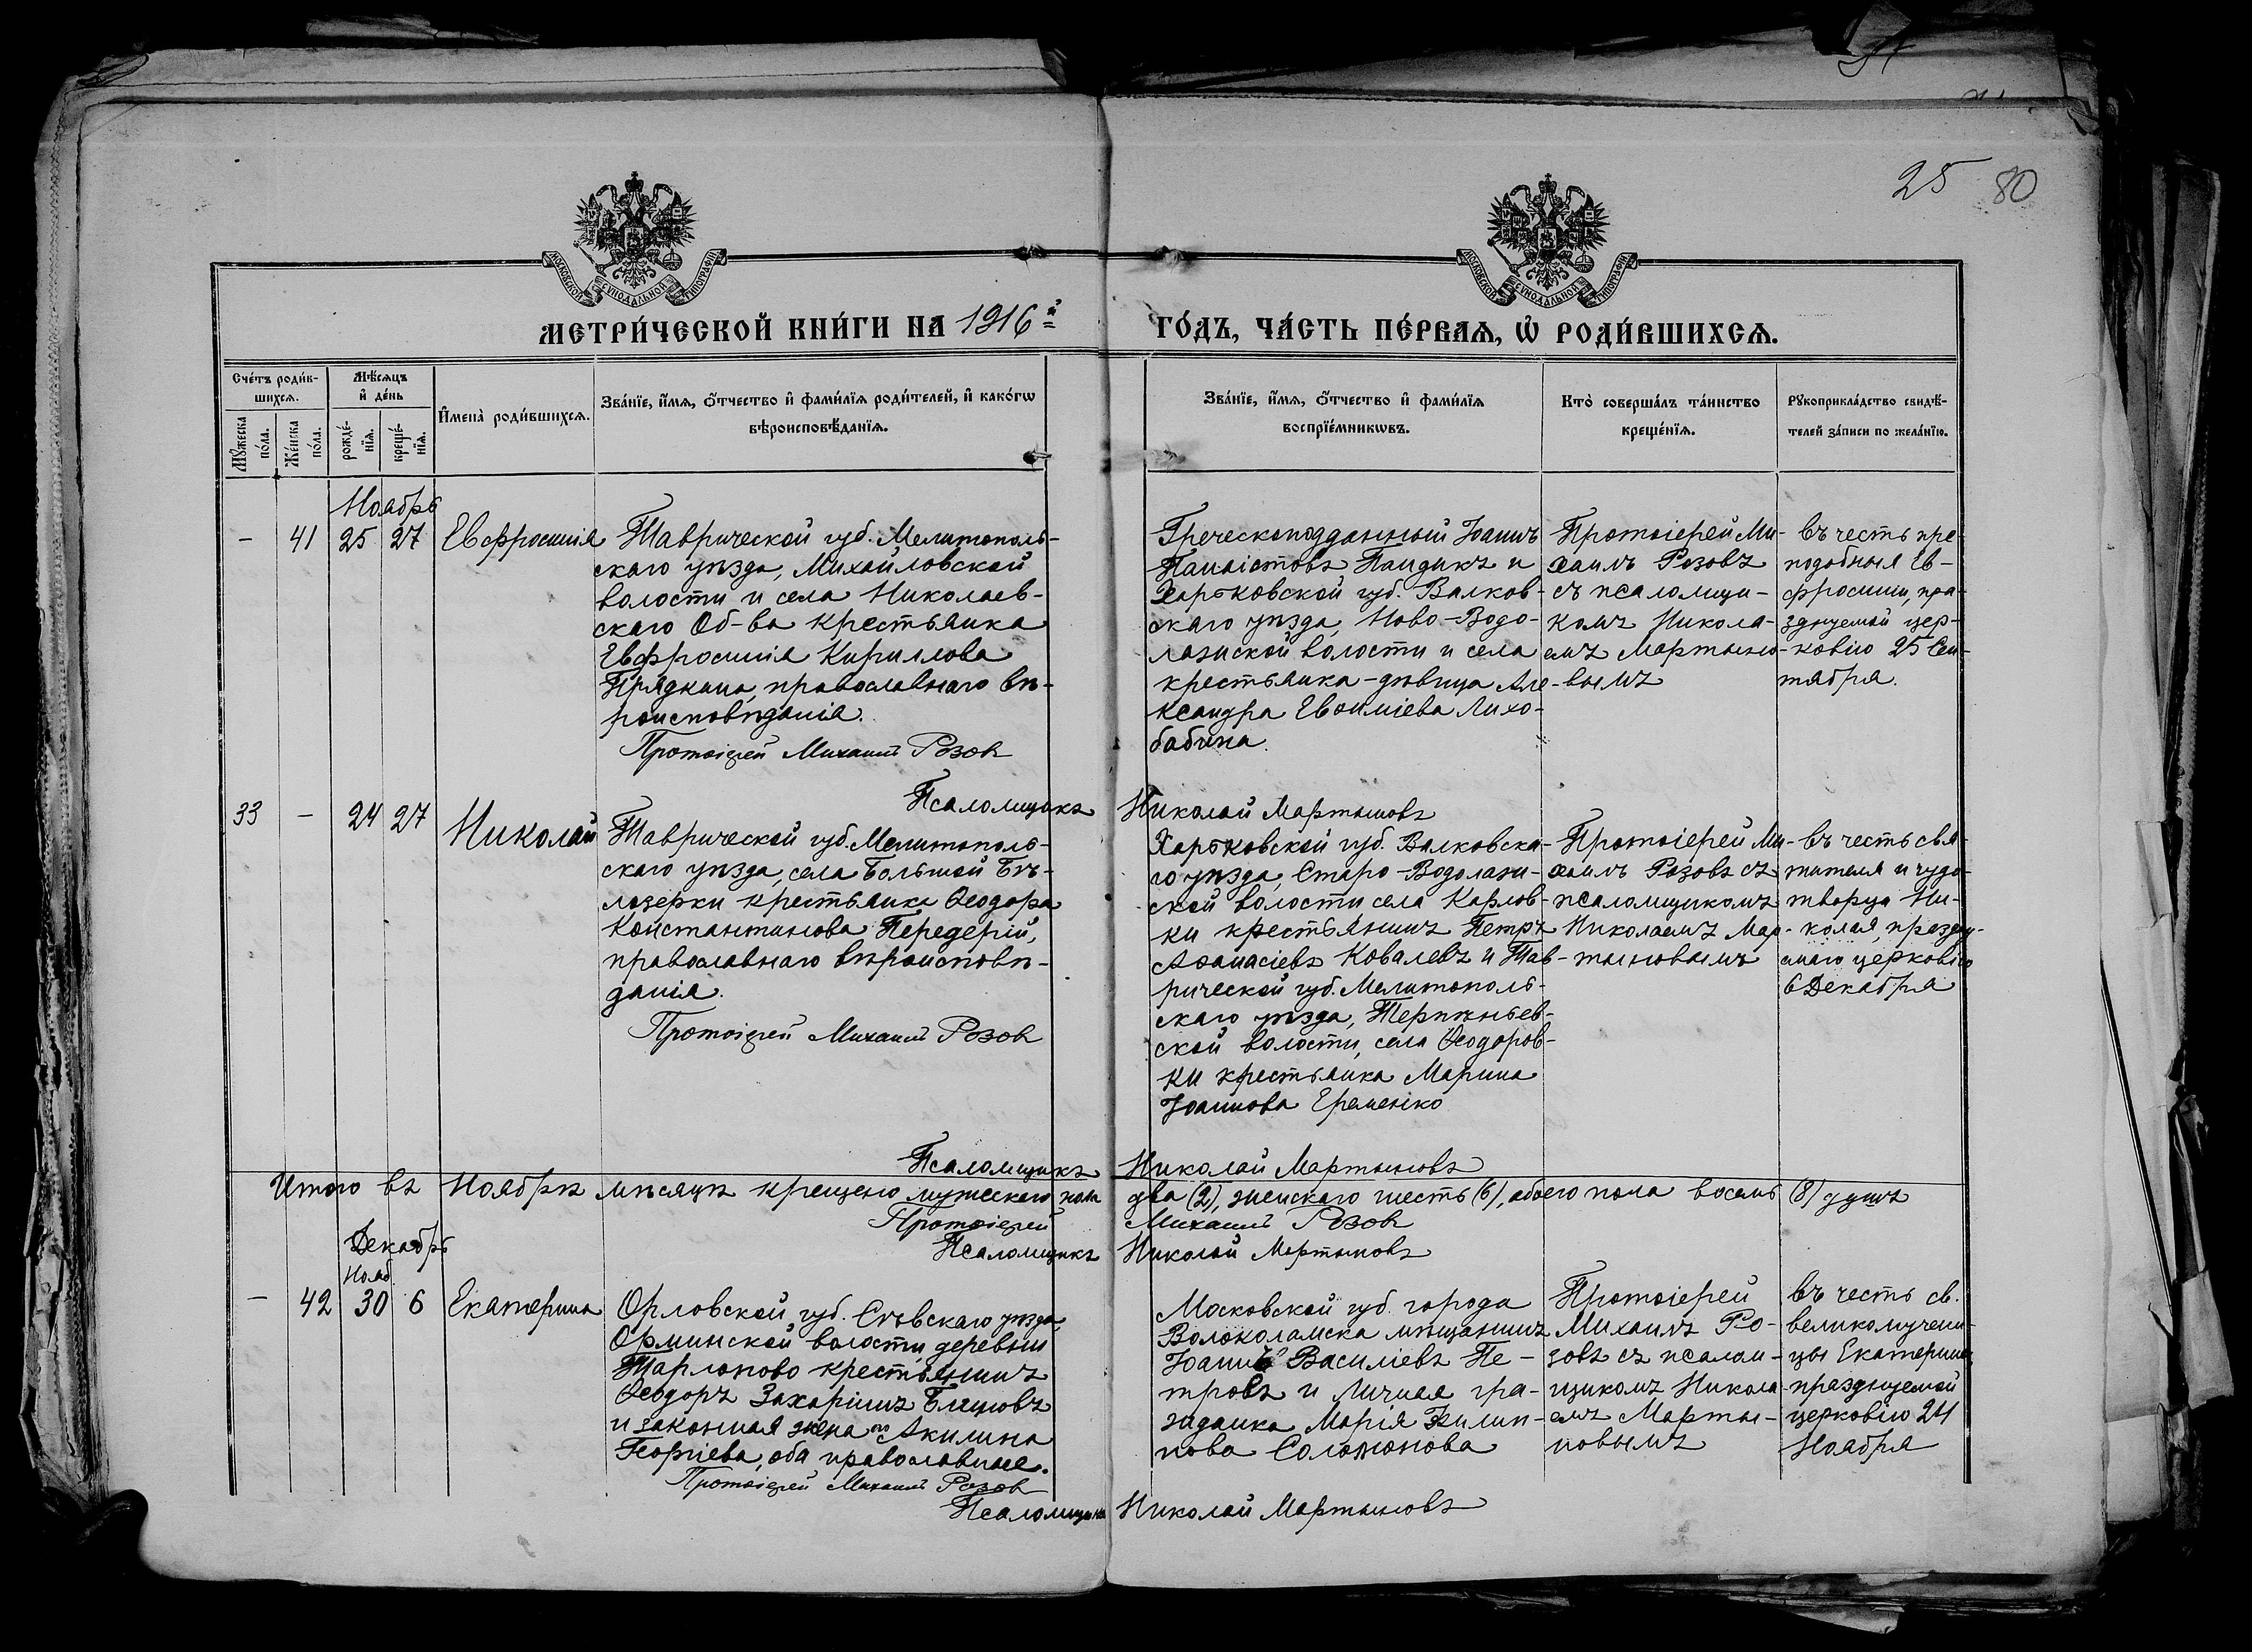 25 80
МОСКОВСКОЙ СУНОДАЛЬНОЙ ТИПОГРАФІИ
МОСКОВСКОЙ СУНОДАЛЬНОЙ ТИПОГРАФІИ
МЕТРИ́ЧЕСКОЙ КНИ́ГИ НА 1916й
ГО́ДЪ, ЧА́СТЬ ПЕ́РВАѦ, Ѡ҆ РОДИ́ВШИХСѦ.
Сче́тъ роди́в-
шихсѧ.
Мѣ́сѧцъ
и҆ де́нь
Мꙋ́жеска
по́ла.
Же́нска
по́ла.
рожде́-
нїѧ.
креще́-
нїѧ.
И҆мена̀ роди́вшихсѧ.
Зва́нїе, и҆́мѧ, ѻ҆́тчество и҆ фами́лїѧ роди́телей, и҆ како́гѡ
вѣроисповѣ́данїѧ.
Зва́нїе, и҆́мѧ, ѻ҆́тчество и҆ фами́лїѧ
воспрїе́мникѡвъ.
Кто̀ соверша́лъ та́инство
креще́нїѧ.
Рꙋкоприкла́дство свидѣ́-
телей за́писи по жела́нїю.
Ноябрь
- 41 25 27 Евфросинія
Таврической губ. Мелитополь-
скаго уѣзда, Михайловской
волости и села Николаев-
скаго Об-ва крестьянка
Евфросинія Кириллова
Прядкина, православнаго вѣ-
роисповѣданія.
Протоіерей Михаилъ Розов
Греческоподданный Іоаннъ
Пандикъ и
Харьковской губ. Валков-
скаго уѣзда, Ново-Водо-
лазиской волости и села
крестьянка-дѣвица Але-
ксандра Евѳиміева Лихо-
бабина.
Протоіерей Ми-
хаилъ Розовъ
съ псаломщи-
комъ Никола-
емъ Мартыно-
вымъ
въ честь пре-
подобныя Ев-
фросиніи, пра-
зднуемой цер-
ковію 25 Сен-
тября.
Псаломщикъ Николай Мартыновъ
33 - 24 27 Николай
Таврической губ. Мелитополь-
скаго уѣзда, села Большой Бѣ-
лозерки крестьянка Ѳеодора
Константинова Передерій,
православнаго вѣроисповѣ-
данія.
Протоіерей Михаилъ Розов
Харьковской губ. Валковска-
го уѣзда, Старо-Водолази-
ской волости села Карлов-
ки крестьянинъ Петръ
Аѳанасіевъ Ковалевъ и Тав-
рической губ. Мелитополь-
скаго уѣзда,
ской волости, села Ѳеодоров-
ки крестьянка Марина
Іоаннова Еременко
Протоіерей Ми-
хаилъ Розовъ съ
псаломщикомъ
Николаемъ Мар-
тыновымъ
въ честь свя-
тителя и чудо-
творца Ни-
колая, праздну-
емаго церковію
6 Декабря
Псаломщикъ Николай Мартыновъ
Итого въ Ноябрѣ мѣсяцѣ крещено мужескаго пола два (2), женскаго шесть (6), обоего пола восемь (8) душъ
Протоіерей Михаилъ Розов
Псаломщикъ Николай Мартыновъ
Декабрь
Нояб.
- 42 30 6 Екатерина
Орловской губ. Сѣвскаго уѣзда,
волости деревни
крестьянинъ
Ѳеодоръ Захаріинъ
и законная жена его Акилина
Георгіева, оба православные.
Протоіерей Михаилъ Розов
Московской губ. города
Волоколамска мѣщанинъ
Іоаннъ Василіевъ Пе-
тровъ и личная гра-
жданка Марія Филип-
пова Соломонова
Протоіерей
Михаилъ Ро-
зовъ съ псалом-
щикомъ Никола-
емъ Марты-
новымъ
въ честь св.
великомучени-
цы Екатерины,
празднуемой
церковію 24
Ноября
Псаломщикъ Николай Мартыновъ